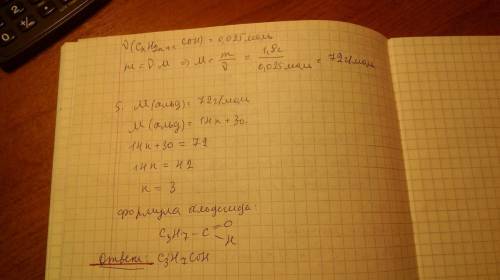 ν(CnH2n+1 COH) = 0,025 моль
m = ν M ⇒ M = m/ν = 1,8г/0,025моль = 72 г/моль
5. M(альд) = 72г/моль
M(альд) = 14n+30.
14n+30 = 72
14n = 42
n = 3
формула альдегида:
C3H7 - C =O
H
Ответ: C3H7COH